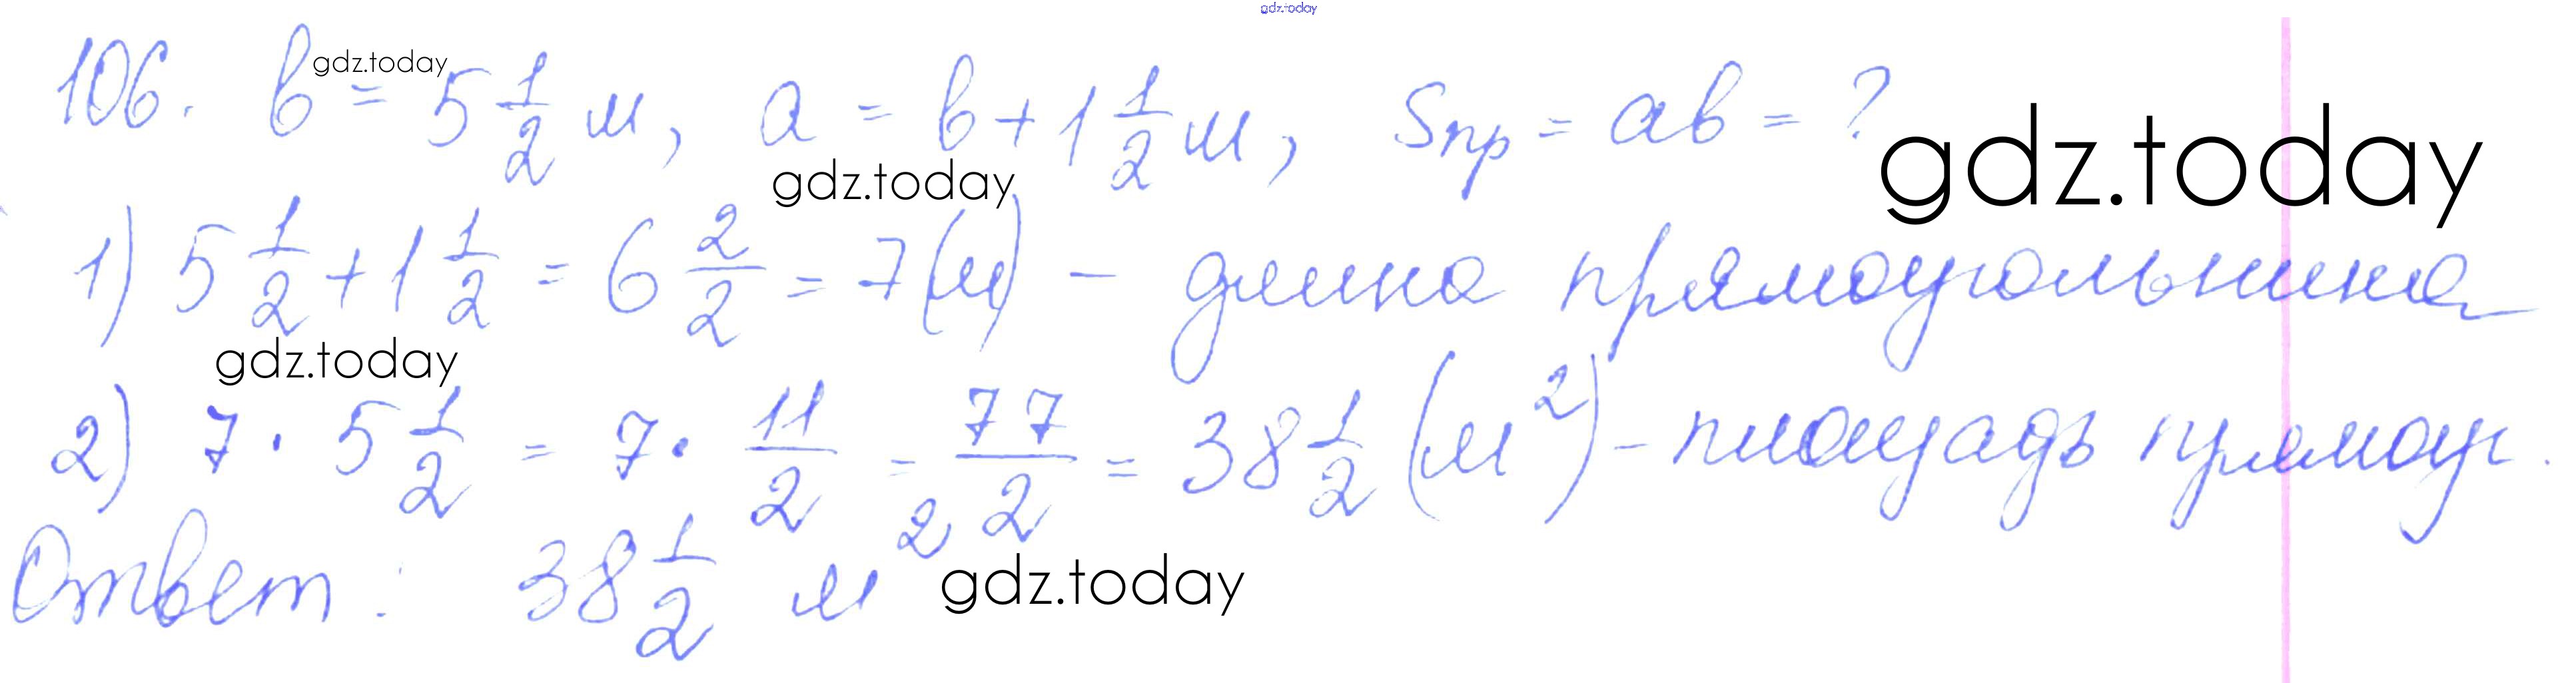 gdz.today
106. b = 5 1/2 м, a = b + 1 1/2 м, Sпр = ab = ?
gdz.today
gdz.today
gdz.today
1) 5 1/2 + 1 1/2 = 6 2/2 = 7 (м) - длина прямоугольника
gdz.today
2) 7 · 5 1/2 = 7 · 11/2 = 77/2 = 38 1/2 (м²) - площадь прямоуг.
Ответ: 38 1/2 м²
gdz.today